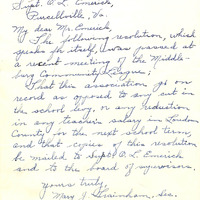 Supt. O. L. Emerick,
Purcellville, Va.
My dear Mr. Emerick,
The following resolution, which
speaks for itself, was passed at
a recent meeting of the Middle-
burg Community League;
That this association go on
record as opposed to any cut in
the school levy, or any reduction
in any teacher's salary in Loudoun
County for the next school term,
and that copies of this resolution
be mailed to Supt. O. L. Emerick
and to the board of supervisors.
Yours truly,
Mary J. Sec.